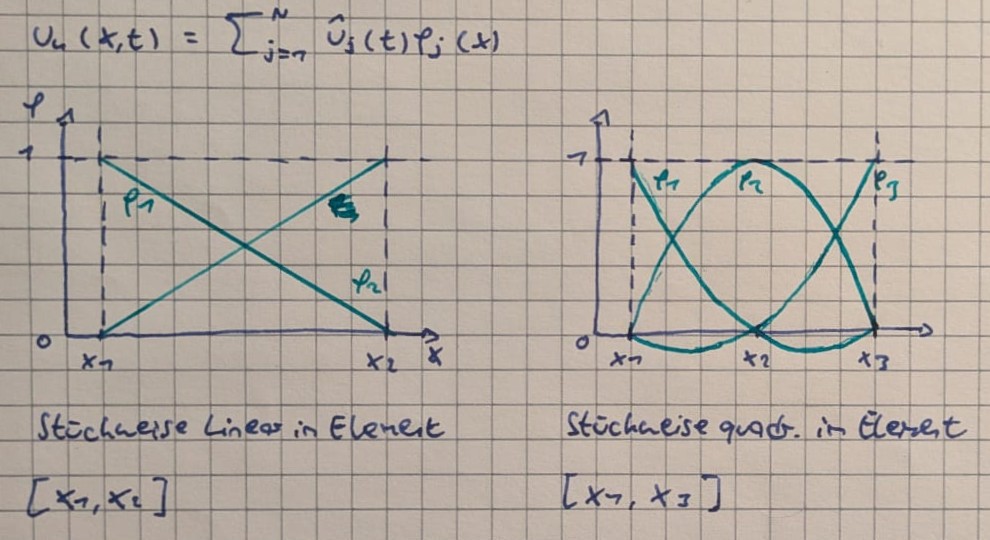 u_h(x,t) = ∑_{j=1}^{N} û_j(t)φ_j(x)
φ
1
φ1
φ2
0
x1
x2
x
Stückweise Linear in Element
[x1, x2]
1
φ1
φ2
φ3
0
x1
x2
x3
Stückweise quadr. in Element
[x1, x3]